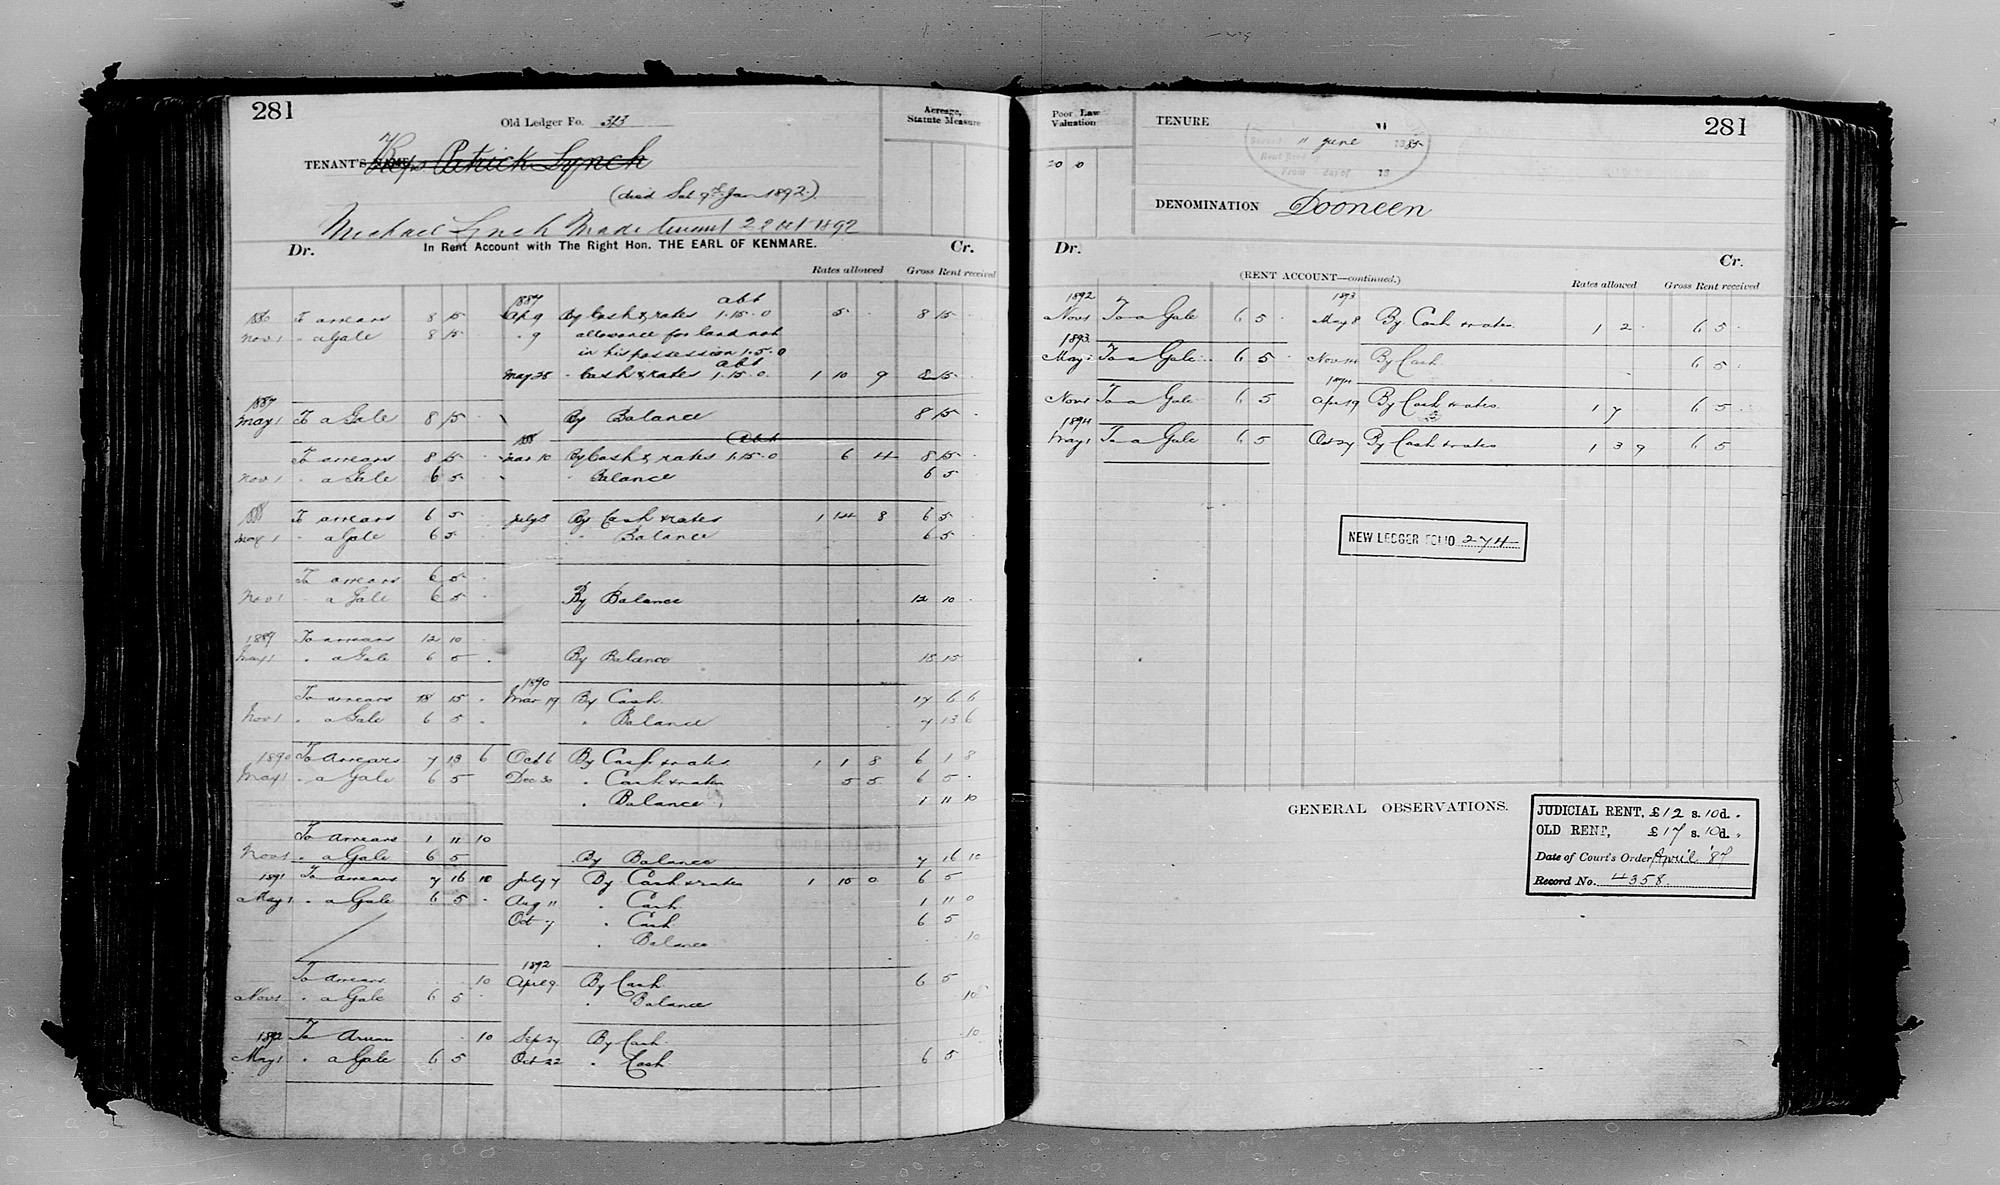 281
Old Ledger Fo. 313
TENANT'S NAME Patrick Lynch
(died Sat 9th Jan 1892.)
Michael Lynch Made tenant 22 Oct 1892
Acreage, Statute Measure
Dr. In Rent Account with The Right Hon. THE EARL OF KENMARE. Cr.
Rates allowed Gross Rent received
1887 abt
1886 To arrears 8 15 . Apl 9 By Cash & rates 1.15.0 5 . 8 15 .
Nov 1 " a Gale 8 15 . 9 allowance for land not
in his possession 1.5.0
abt
May 28 " Cash & rates 1.15.0 1 10 9 8 15 .
1887
May 1 To a Gale 8 15 . By Balance 8 15 .
1888 abt
To arrears 8 15 . Mar 10 By Cash & rates 1.15.0 6 4 8 15 .
Nov 1 " a Gale 6 5 . " Balance 6 5
1888 To arrears 6 5 . July 3 By Cash & rates 1 14 8 6 5 .
May 1 " a Gale 6 5 " Balance 6 5
To arrears 6 5 .
Nov 1 " a Gale 6 5 . By Balance 12 10 .
1889 To arrears 12 10 .
May 1 " a Gale 6 5 . By Balance 18 15
1890
To arrears 18 15 . Mar 19 By Cash 17 6 6
Nov 1 " a Gale 6 5 . " Balance 7 13 6
1890 To Arrears 7 13 6 Oct 6 By Cash & rates 1 1 8 6 1 8
May 1 " a Gale 6 5 Dec 30 " Cash & rates 5 5 6 5 .
" Balance 1 11 10
To Arrears 1 11 10
Nov 1 " a Gale 6 5 By Balance 7 16 10
1891 To arrears 7 16 10 July 7 By Cash & rates 1 10 0 6 5
May 1 " a Gale 6 5 . Aug 11 " Cash 1 11 0
Oct 7 " Cash 6 5
" Balance 10
1892
To arrears 10 April 9 By Cash 6 5
Nov 1 " a Gale 6 5 . " Balance 10
1892 To Arrears 10 Sep 27 By Cash 10
May 1 " a Gale 6 5 Oct 22 " Cash 6 5
Poor Law Valuation
TENURE
281
11 June 1885
From day of 18
DENOMINATION Dooneen
Dr. Cr.
(RENT ACCOUNT—continued.)
Rates allowed Gross Rent received
1892 1893
Nov 1 To a Gale 6 5 . May 8 By Cash & rates 1 2 . 6 5 .
1893
May 1 To a Gale 6 5 . Nov 14 By Cash 6 5 .
1894
Nov 1 To a Gale 6 5 Apr 19 By Cash & rates 1 7 6 5 .
1894
May 1 To a Gale 6 5 Oct 27 By Cash & rates 1 3 9 6 5
NEW LEDGER FOLIO 274
GENERAL OBSERVATIONS.
JUDICIAL RENT, £12 s.10d. "
OLD RENT, £17 s.10d. "
Date of Court's Order April '87
Record No. 4358